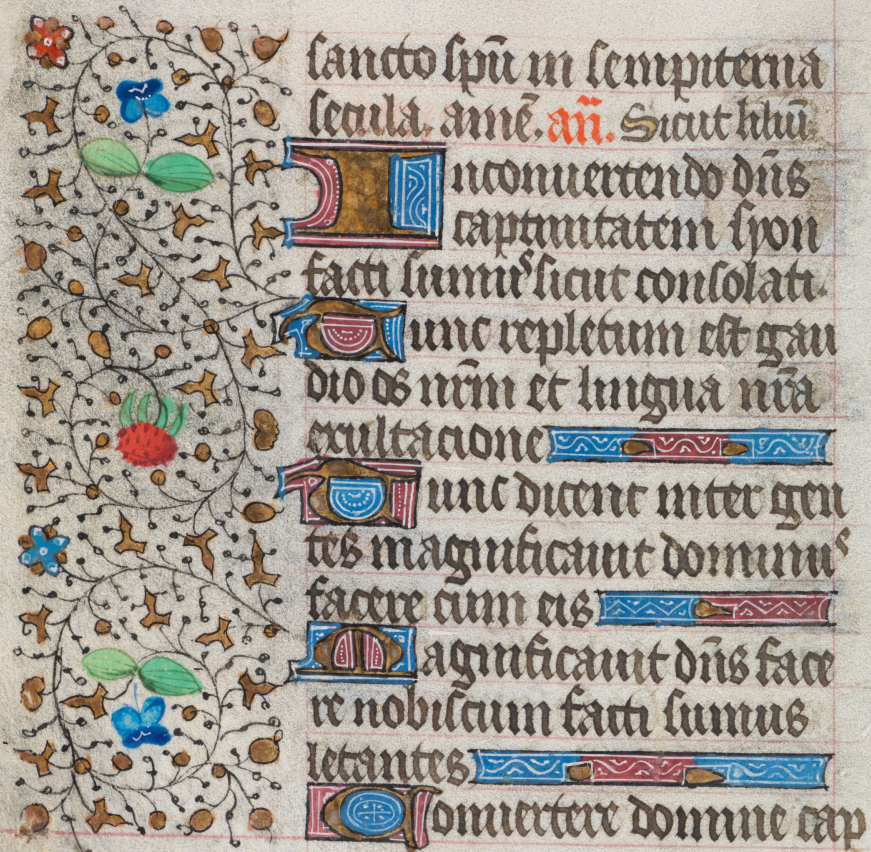 sancto spū in sempiterna
secula. amē. an̄. Sicut liliū
Inconuertendo dn̄s
captiuitatem syon
facti sumus sicut consolati.
Tunc repletum est gau
dio os nr̄m et lingua nr̄a
exultacione
Tunc dicent inter gen
tes magnificauit dominus
facere cum eis
Magnificauit dn̄s face
re nobiscum facti sumus
letantes
Conuertere domine cap